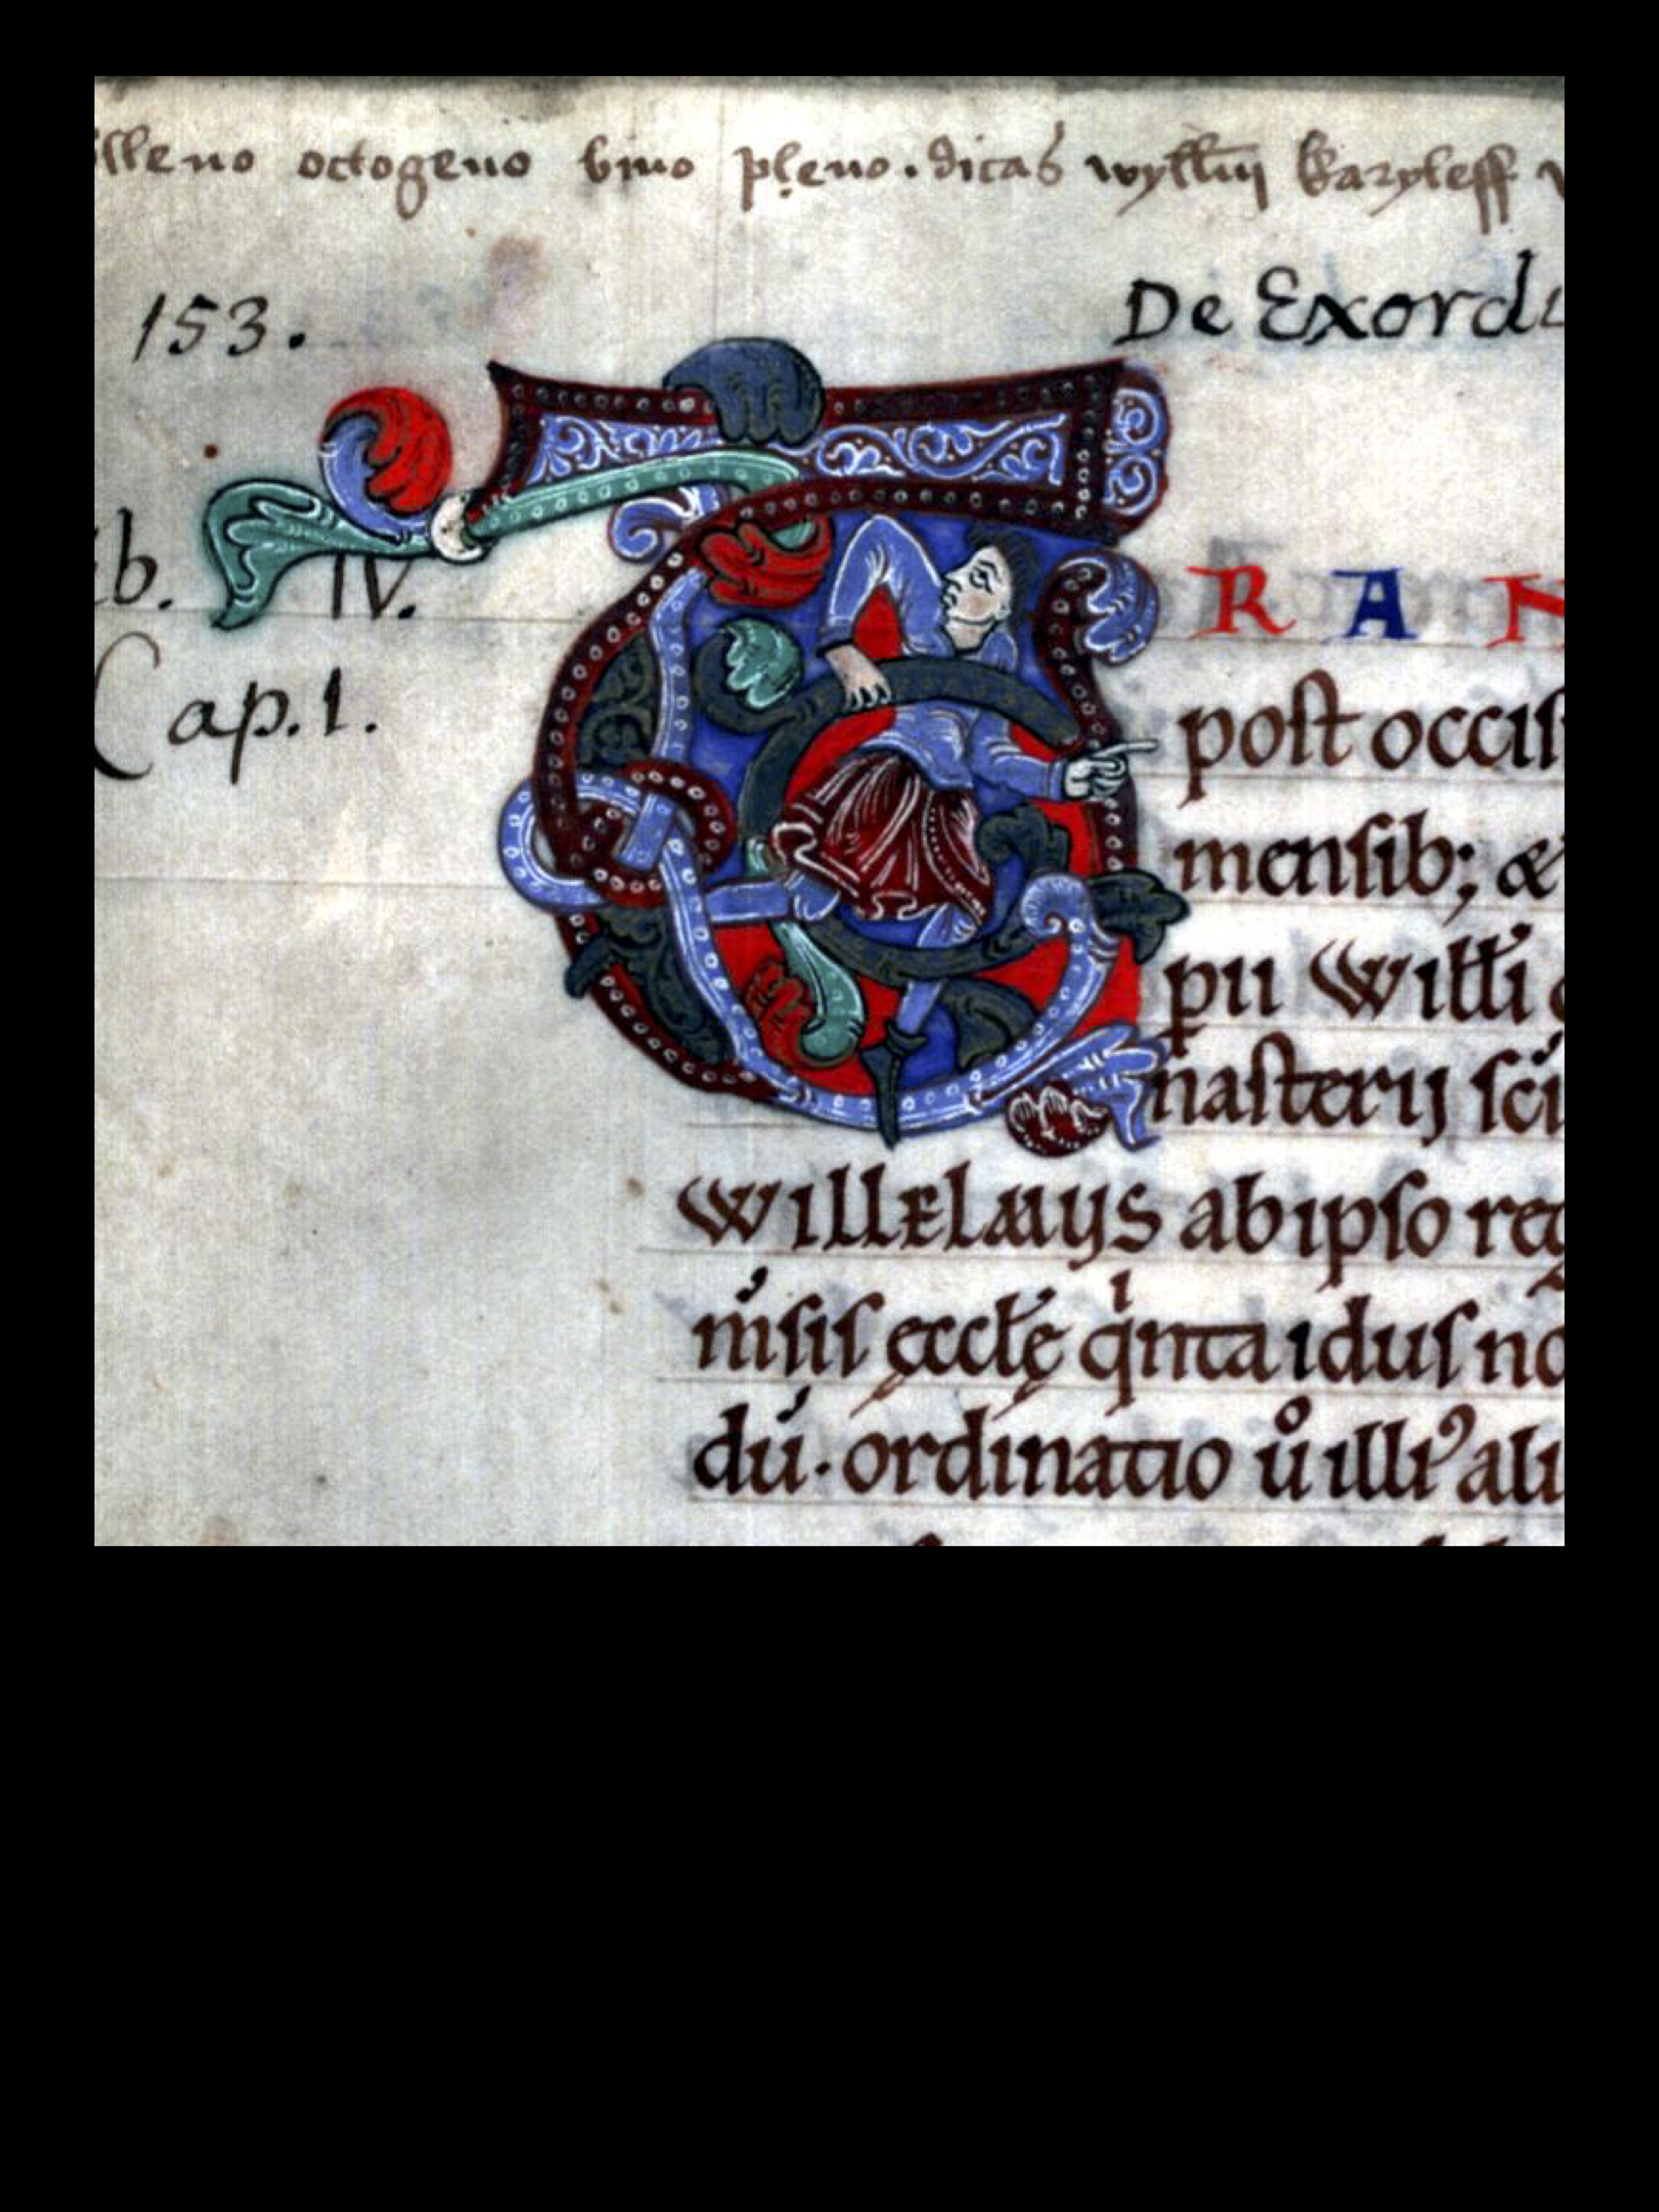 lleno octogeno bino pleno. dicas wyllm̄ karyleff
153.
De Exord
b. IV.
Cap. 1.
T RAN
post occis
mensib; &
pii Will̄i
nasterij sc̄i
WILLELMUS ab ipso reg
m̄sis ęccl̄ę qͥnta idus no
dū. ordinatio ů illiꝰ ali